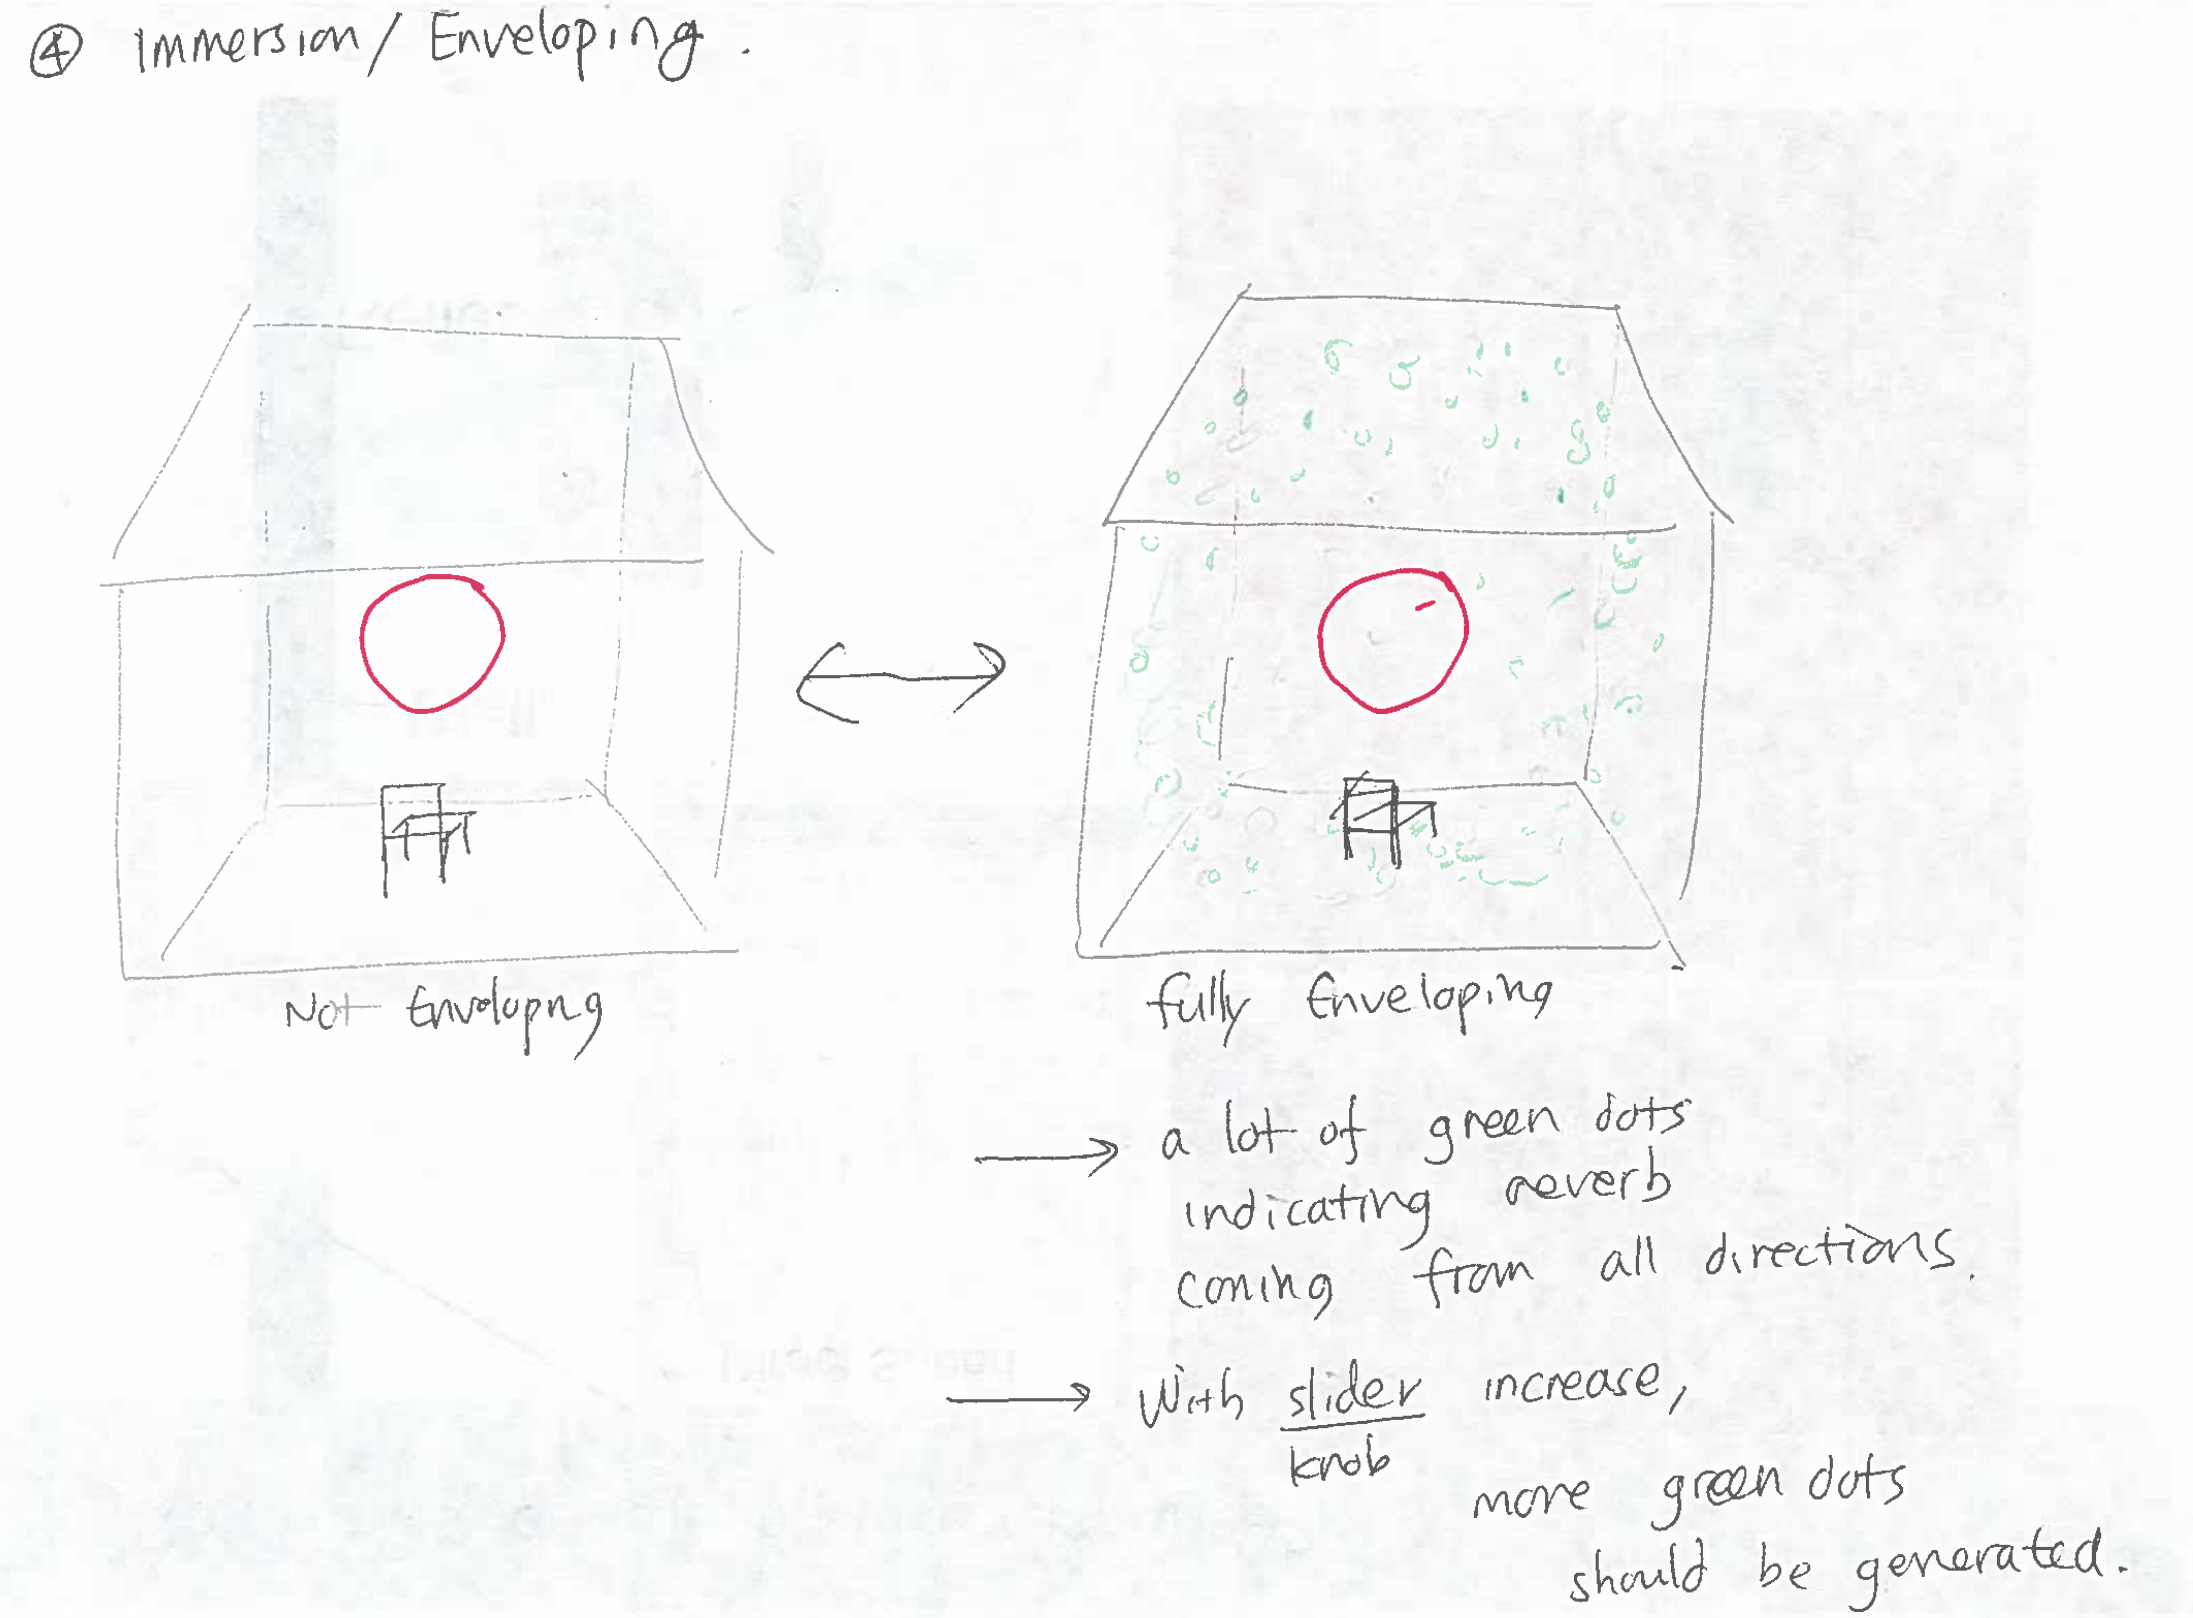 ④ Immersion/ Enveloping.
Not Envelopng
fully Enveloping
→ a lot of green dots
indicating reverb
coming from all directions.
→ With slider increase,
knob
more green dots
should be generated.